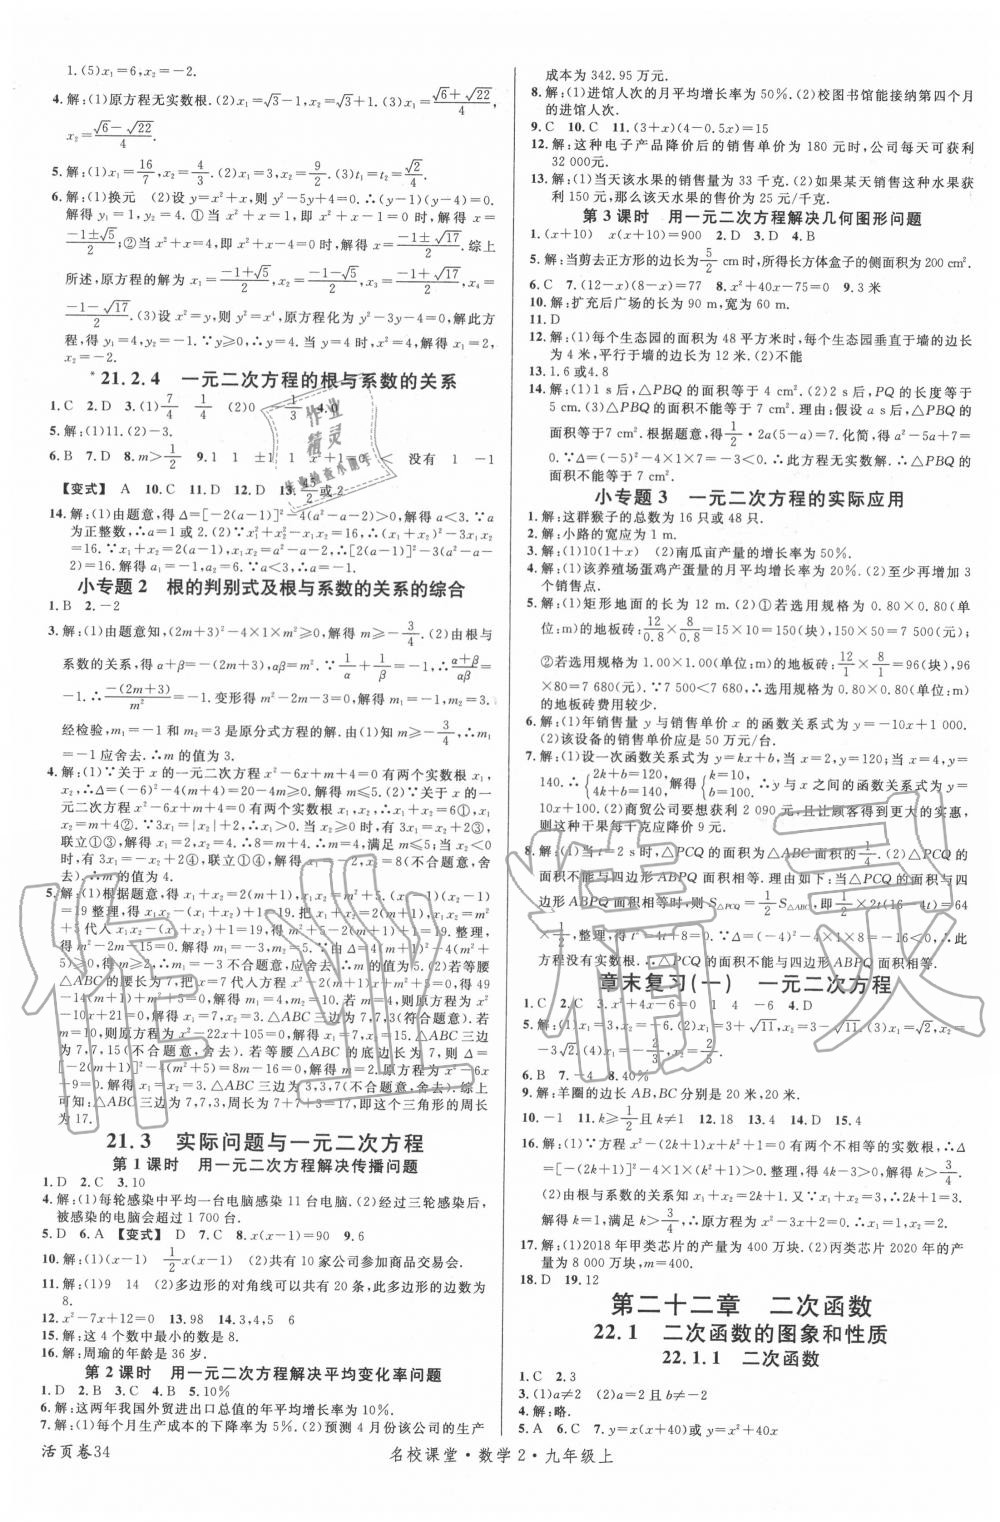 1.(5)x₁=6,x₂=-2.
4.解:(1)原方程无实数根.(2)x₁=√3-1,x₂=√3+1.(3)x₁=(√6+√22)/4,
x₂=(√6-√22)/4.
5.解:(1)x₁=16/7,x₂=4/3.(2)x₁=3,x₂=9/2.(3)t₁=t₂=√2/4.
6.解:(1)换元 (2)设y=x²+x,则y²-5y+4=0.∴(y-1)(y-4)=0.
解得y₁=1,y₂=4.①当x²+x=1,即x²+x-1=0时,解得x=
(-1±√5)/2;②当x²+x=4,即x²+x-4=0时,解得x=(-1±√17)/2.综上
所述,原方程的解为x₁=(-1+√5)/2,x₂=(-1-√5)/2,x₃=(-1+√17)/2,x₄=
(-1-√17)/2.(3)设x²=y,则y²=x⁴,原方程化为y²-3y-4=0.解此方
程,得y₁=4,y₂=-1.∵y≥0,∴y=4.当y=4时,x²=4,解得x₁=2,
x₂=-2.
*21.2.4 一元二次方程的根与系数的关系
1.C 2.D 3.(1)7/4 1/4 (2)0 -1/3 4.0
5.解:(1)11.(2)-3.
6.B 7.D 8.m>1/2 9.1 1 ±1 1 x²+1=0 < 没有 1 -1
【变式】 A 10.C 11.D 12.D 13.15/2或2
14.解:(1)由题意,得Δ=[-2(a-1)]²-4(a²-a-2)>0,解得a<3.∵a
为正整数,∴a=1或2.(2)∵x₁²+x₂²-x₁x₂=16,∴(x₁+x₂)²-3x₁x₂
=16.∵x₁+x₂=2(a-1),x₁x₂=a²-a-2,∴[2(a-1)]²-3(a²-a-2)
=16.解得a₁=-1,a₂=6.∵a<3,∴a=-1.
小专题2 根的判别式及根与系数的关系的综合
1.B 2.-2
3.解:(1)由题意知,(2m+3)²-4×1×m²≥0,解得m≥-3/4.(2)由根与
系数的关系,得α+β=-(2m+3),αβ=m².∵1/α+1/β=-1,∴(α+β)/αβ=
-1.∴-(2m+3)/m²=-1.变形得m²-2m-3=0,解得m₁=-1,m₂=3.
经检验,m₁=-1和m₂=3是原分式方程的解.由(1)知m≥-3/4,∴m₁
=-1应舍去.∴m的值为3.
4.解:(1)∵关于x的一元二次方程x²-6x+m+4=0有两个实数根x₁,
x₂,∴Δ=(-6)²-4(m+4)=20-4m≥0.解得m≤5.(2)∵关于x的一
元二次方程x²-6x+m+4=0有两个实数根x₁,x₂,∴x₁+x₂=6①,x₁x₂
=m+4②.∵3x₁=|x₂|+2,当x₂≥0时,有3x₁=x₂+2③,
联立①③解得x₁=2,x₂=4.∴8=m+4.∴m=4,满足m≤5;当x₂<0
时,有3x₁=-x₂+2④,联立①④解得x₁=-2,x₂=8(不合题意,舍
去).∴m的值为4.
5.解:(1)根据题意,得x₁+x₂=2(m+1),x₁x₂=m²+5.将(x₁-1)(x₂-1)
=19整理,得x₁x₂-(x₁+x₂)+1=19.将x₁+x₂=2(m+1),x₁x₂=m²
+5代入x₁x₂-(x₁+x₂)+1=19,得m²+5-2(m+1)+1=19.整理,
得m²-2m-15=0,解得m₁=-3,m₂=5.∵Δ=4(m+1)²-4(m²+5)
=8m-16≥0,∴m≥2.∴m=-3不合题意,应舍去.∴m的值为5.(2)若等腰
△ABC的腰长为7,把x=7代入方程x²-2(m+1)x+m²+5=0,得49
-14(m+1)+m²+5=0.解得m₁=10,m₂=4.当m=4时,原方程为x²
-10x+21=0.解得x₁=3,x₂=7.△ABC三边为7,7,3(符合题意).当
m=10时,原方程为x²-22x+105=0.解得x₁=7,x₂=15.△ABC三边
为7,7,15(不合题意,舍去).若等腰△ABC的底边长为7,则Δ=
[-2(m+1)]²-4(m²+5)=8m-16=0,解得m=2.原方程为x²-6x
+9=0.解得x₁=x₂=3.△ABC三边为3,3,7(不合题意,舍去).综上
可知:△ABC三边为7,7,3,周长为7+7+3=17,即这个三角形的周长
为17.
21.3 实际问题与一元二次方程
第1课时 用一元二次方程解决传播问题
1.D 2.C 3.10
4.解:(1)每轮感染中平均一台电脑感染11台电脑.(2)经过三轮感染后,
被感染的电脑会超过1 700台.
5.D 6.A 【变式】 D 7.C 8.x(x-1)=90 9.6
10.解:(1)(x-1) 1/2x(x-1) (2)共有10家公司参加商品交易会.
11.解:(1)9 14 (2)多边形的对角线可以共有20条,此多边形的边数为
8.
12.x²-7x+12=0 13.98 14.3,4,5 6
15.解:这4个数中最小的数是8.
16.解:周瑜的年龄是36岁.
第2课时 用一元二次方程解决平均变化率问题
1.D 2.B 3.C 4.B 5.10%
6.解:这两年我国外贸进出口总值的年平均增长率为10%.
7.解:(1)每个月生产成本的下降率为5%.(2)预测4月份该公司的生产
成本为342.95万元.
8.解:(1)进馆人次的月平均增长率为50%.(2)校图书馆能接纳第四个月
的进馆人次.
9.C 10.C 11.(3+x)(4-0.5x)=15
12.解:这种电子产品降价后的销售单价为180元时,公司每天可获利
32 000元.
13.解:(1)当天该水果的销售量为33千克.(2)如果某天销售这种水果
获利150元,那么该天水果的售价为25元/千克.
第3课时 用一元二次方程解决几何图形问题
1.(x+10) x(x+10)=900 2.D 3.D 4.B
5.解:当剪去正方形的边长为5/2 cm时,所得长方体盒子的侧面积为200 cm².
6.C 7.(12-x)(8-x)=77 8.x²+40x-75=0 9.3米
10.解:扩充后广场的长为90 m,宽为60 m.
11.D
12.解:(1)每个生态园的面积为48平方米时,每个生态园垂直于墙的边长
为4米,平行于墙的边长为12米.(2)不能
13.1.6或4.8
14.解:(1)1 s后,△PBQ的面积等于4 cm².(2)2 s后,PQ的长度等于
5 cm.(3)△PBQ的面积不能等于7 cm².理由:假设a s后,△PBQ的
面积等于7 cm².根据题意,得1/2·2a(5-a)=7.化简,得a²-5a+7=
0.∵Δ=(-5)²-4×1×7=-3<0,∴此方程无实数根.∴△PBQ的
面积不能等于7 cm².
小专题3 一元二次方程的实际应用
1.解:这群猴子的总数为16只或48只.
2.解:小路的宽应为1 m.
3.解:(1)10(1+x) (2)南瓜亩产量的增长率为50%.
4.解:(1)该养殖场蛋鸡产蛋量的月平均增长率为20%.(2)至少再增加3
个销售点.
5.解:(1)矩形地面的长为12 m.(2)①若选用规格为0.80×0.80(单
位:m)的地板砖:12/0.8×8/0.8=15×10=150(块),150×50=7 500(元);
②若选用规格为1.00×1.00(单位:m)的地板砖:12/1×8/1=96(块),96
×80=7 680(元).∵7 500<7 680,∴选用规格为0.80×0.80(单位:m)
的地板砖费用较少.
6.解:(1)年销售量y与销售单价x的函数关系式为y=-10x+1 000.
(2)该设备的销售单价应是50万元/台.
7.解:(1)设一次函数关系式为y=kx+b,当x=2,y=120;当x=4,y=
140.∴{2k+b=120,4k+b=140,解得{k=10,b=100.∴y与x之间的函数关系式为y=
10x+100.(2)商贸公司要想获利2 090元,且让顾客得到更大的实惠,
则这种干果每千克应降价9元.
8.解:(1)当t=2 s时,△PCQ的面积为△ABC面积的1/4.(2)△PCQ的
面积不能与四边形ABPQ面积相等.理由如下:当△PCQ的面积与四
边形ABPQ面积相等时,则S△PCQ=1/2S△ABC,即1/2×2t(16-4t)=64
×1/2,整理,得t²-4t+8=0.∵Δ=(-4)²-4×8=-16<0,∴此
方程没有实数根.∴△PCQ的面积不能与四边形ABPQ面积相等.
章末复习(一) 一元二次方程
1.C 2.C 3.x²+4x-6=0 1 4 -6 4.D
5.解:(1)x₁=3,x₂=-1.(2)x₁=3+√11,x₂=3-√11.(3)x₁=√2,x₂=
-3√2.(4)x₁=x₂=-2.
6.B 7.-4 8.40%
9.解:羊圈的边长AB,BC分别是20米,20米.
10.-1 11.k≥1/2且k≠1 12.18 13.4 14.D 15.4
16.解:(1)∵方程x²-2(k-1)x+k²-k-1=0有两个不相等的实数根,∴Δ
=[-2(k-1)]²-4(k²-k-1)=-4k+8>0.
4.
17.解:(1)2018年甲类芯片的产量为400万块.(2)丙类芯片2020年的产
量为8 000万块,m=400.
18.D 19.12
第二十二章 二次函数
22.1 二次函数的图象和性质
22.1.1 二次函数
1.C 2.3
3.(1)a≠2 (2)a=2且b≠-2
4.解:略.
5.A 6.C 7.C
活页卷34
名校课堂·数学2·九年级上